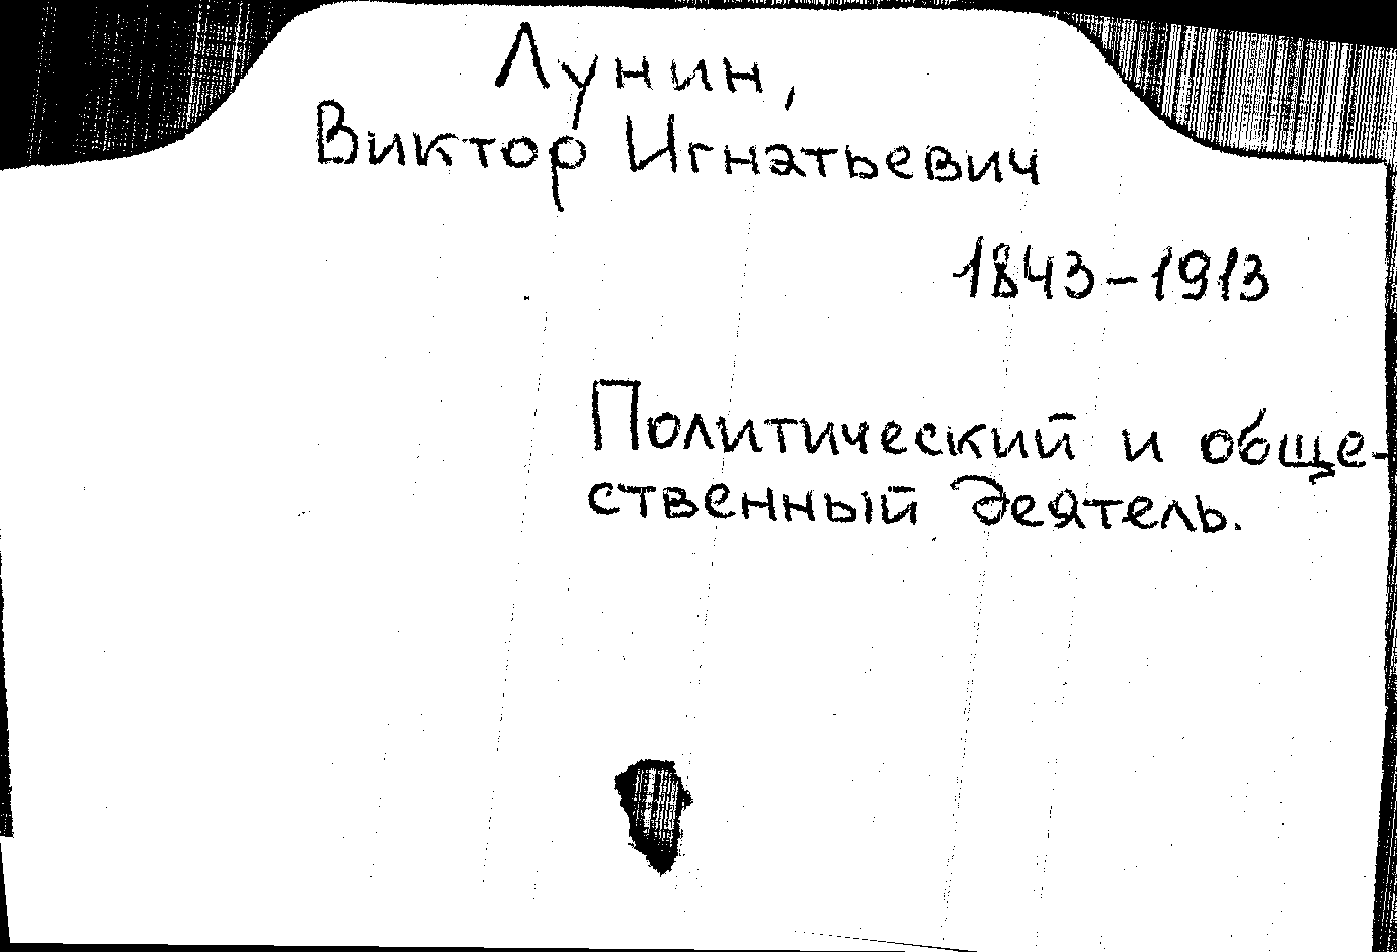 Лунин,
Виктор Игнатьевич
1843-1913
Политический и обще-
ственный деятель.